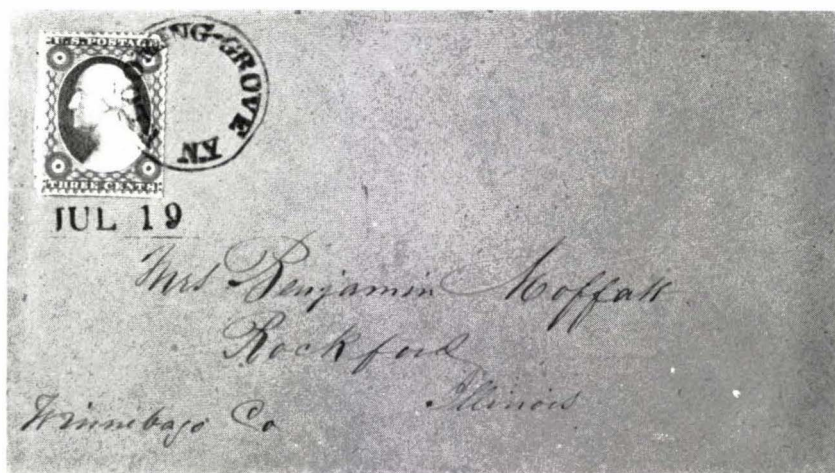 U.S. POSTAGE
THREE CENTS
ING-GROVE
NY
JUL 19
Mrs Benjamin Moffatt
Rockford
Illinois
Winnebago Co